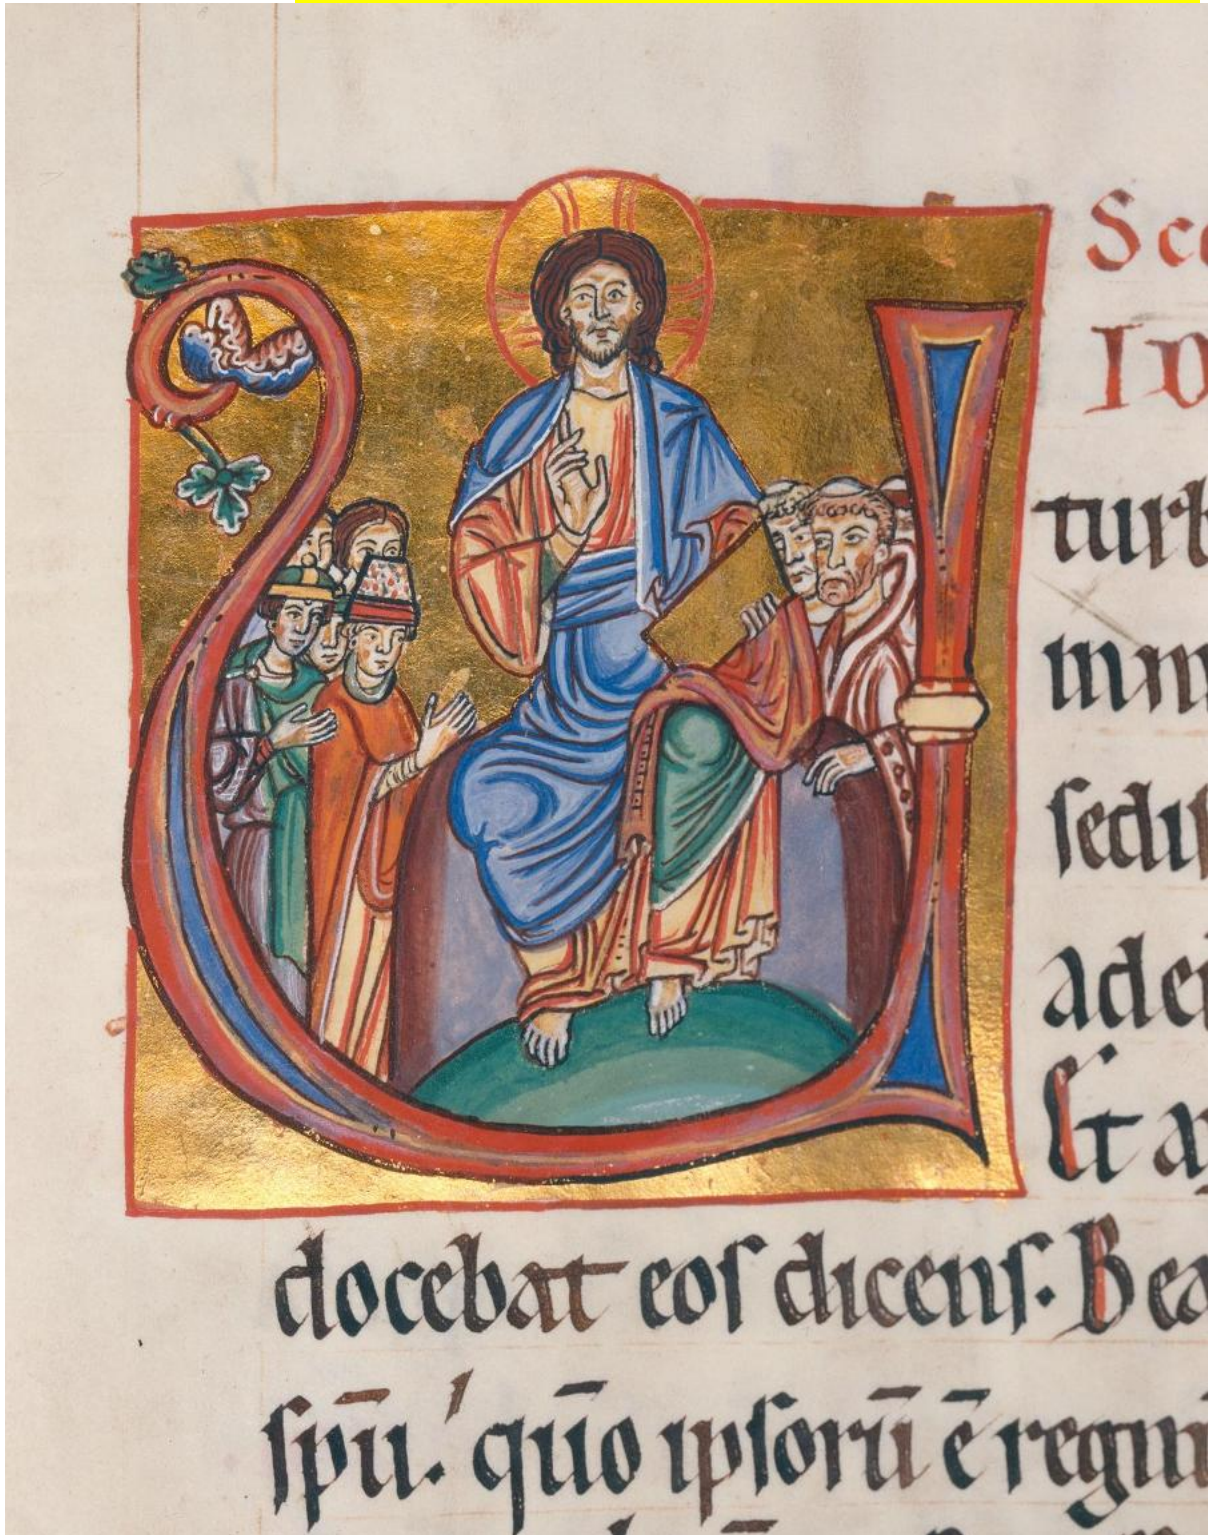 turb
in m
ſediſ
ad ei
Et a
docebat eoſ dicenſ. Bea
ſpū. quō ipſorū ē regnu